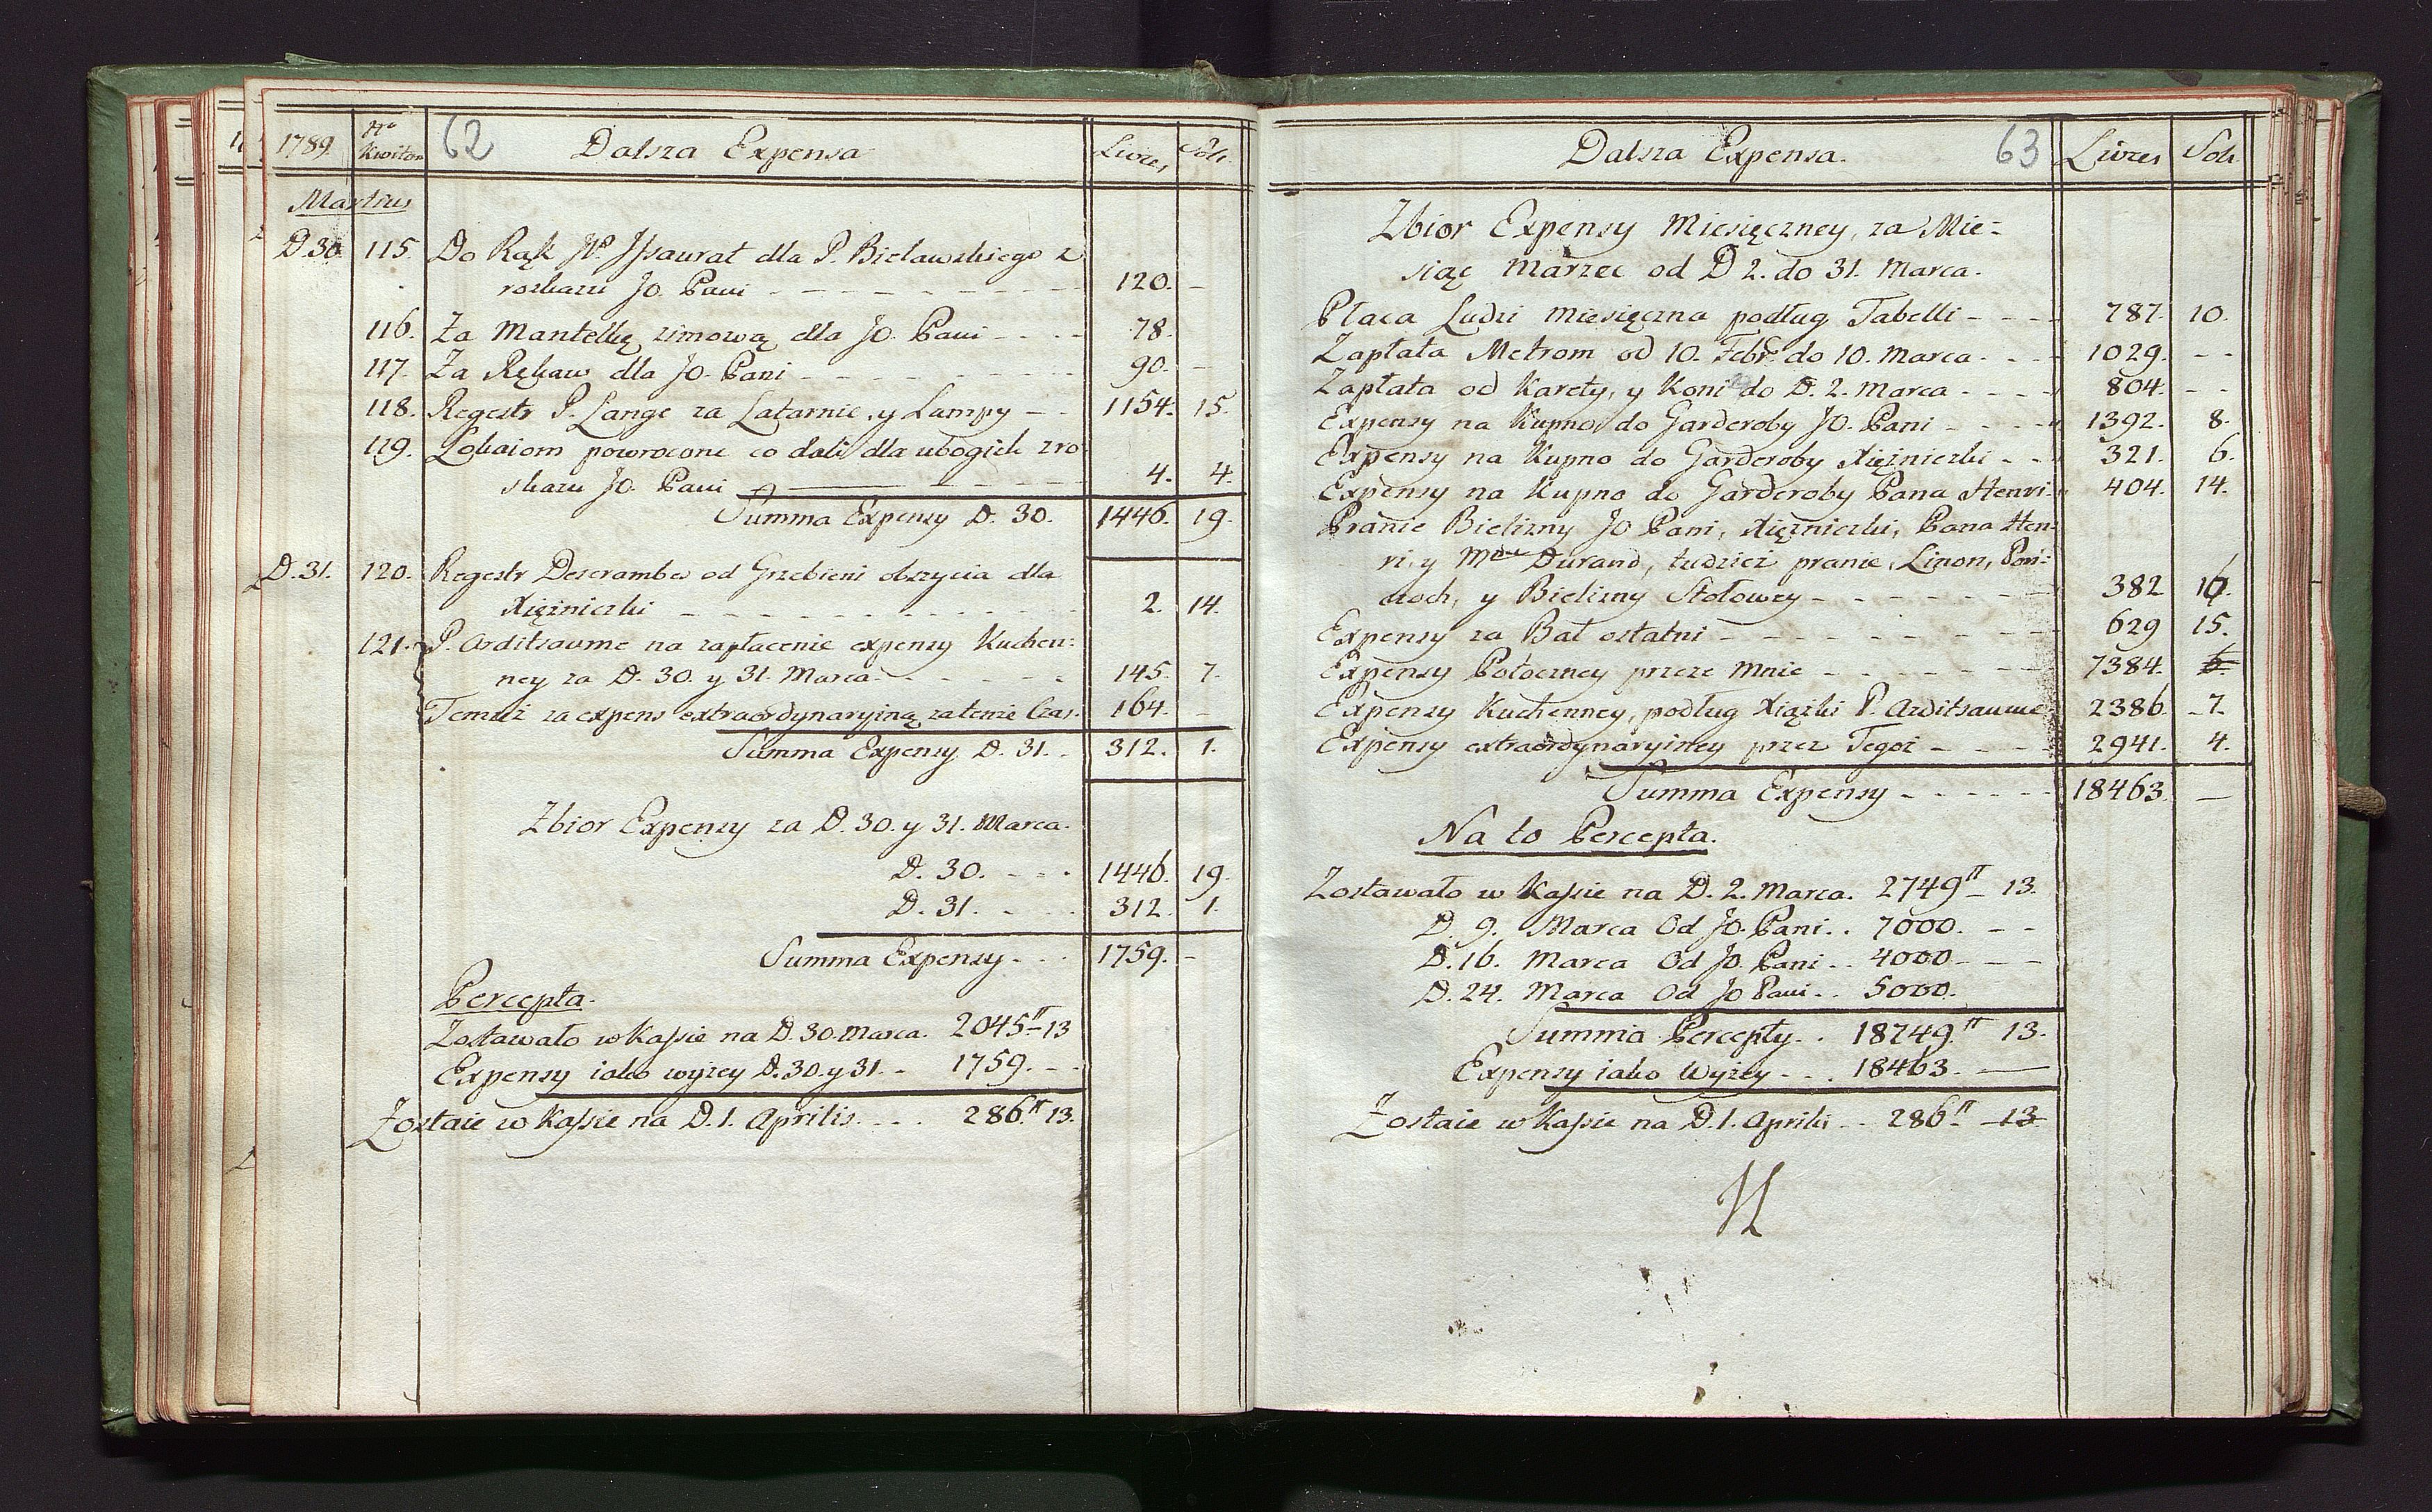 1789. Nro Kwitow 62 Dalsza Expensa Livres Sols
Martius
D. 30 115. Do Rąk JP. Issaurat dla P. Bielawskiego z
roskazu JO. Pani - - - 120. -
116. Za Mantelkę zimową dla JO. Pani - - - 78.
117. Za Rękaw dla JO. Pani - - - 90. -
118. Regestr P. Lange za Latarnie, y Lampy - - 1154. 15.
119. Lokaiom powrocone co dali dla ubogich z ro
skazu JO. Pani - - - 4. 4.
Summa Expensy D. 30. 1446. 19.
D. 31. 120. Regestr Descrambes od Grzebieni obszycia dla
Xiężniczki - - - 2. 14.
121. P. Arditsaume na zapłacenie expensy Kuchen:
ney za D. 30. y 31. Marca - - - 145. 7.
Temuż za expens extraordynaryiną za tenże Czas. 164. -
Summa Expensy D. 31. - 312. 1.
Zbior Expensy za D. 30. y 31. Marca.
D. 30. - - - 1446. 19.
D. 31. - - - 312. 1.
Summa Expensy - - - 1759. -
Percepta.
Zostawało w Kassie na D. 30. Marca. 2045 - 13
Expensy iako wyżey D. 30. y 31. - 1759. - -
Zostaie w Kassie na D. 1. Aprilis. - - - 286. 13.
Dalsza Expensa. 63 Livres Sols
Zbior Expensy Miesięczney, za Mie=
siąc Marzec od D 2. do 31. Marca.
Płaca Ludzi miesięczna podług Tabelli - - - 787. 10.
Zapłata Metrom od 10. Febr. do 10. Marca. - - - 1029. - -
Zapłata od Karety, y Koni do D. 2. Marca - - - 804. - -
Expensy na Kupno do Garderoby JO. Pani - - - 1392. 8.
Expensy na Kupno do Garderoby Xiężniczki - - 321. 6.
Expensy na Kupno do Garderoby Pana Henri. 404. 14.
Pranie Bielizny JO Pani, Xiężniczki, Pana Hen:
ri, y Mde Durand, tudzież pranie, Linon, Poń:
czoch, y Bielizny Stołowey - - - 382 16.
Expensy za Bal ostatni - - - 629 15.
Expensy Potoczney przeze mnie - - - 7384. 6.
Expensy Kuchenney, podług Xiążki P. Arditsaume 2386. 7.
Expensy extraordynaryiney przez Tegoż - - - 2941. 4.
Summa Expensy - - - 18463. -
Na to Percepta.
Zostawało w Kassie na D. 2. Marca. 2749 - 13.
D. 9. Marca Od JO. Pani. . 7000. - -
D. 16. Marca Od JO. Pani . . 4000 - - -
D. 24. Marca Od JO Pani . . 5000.
Summa Percepty. . 18749. 13.
Expensy iako Wyżey - - . 18463. -
Zostaie w Kassie na D. 1. Aprilis - - 286. - 13